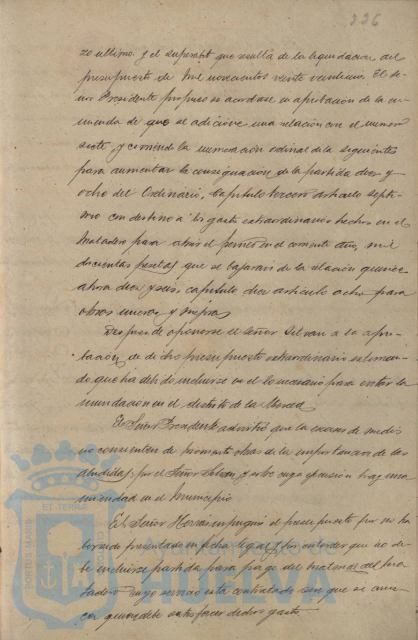 226
zo ultimo y el superabit que resulta de la liquidacion del
presupuesto de mil novecientos veinte veintiuno. El Se-
ñor Presidente propuso se acordase en aprobación de la en-
mienda de que se adicione una relación con el numero
siete y corriendo la numeración ordinal de la siguientes
para aumentar la consignación de la partida diez y
ocho del Ordinario, Capitulo tercero articulo septi-
mo con destino a los gastos extraordinarios hechos en el
Matadero para abrir el en el corriente año, mil
doscientas pesetas que se bajaran de la relación quince
ahora diez y seis, capitulo diez articulo ocho para
obras nuevas y mejoras
Despues de oponerse el Señor Selvan a la apro-
bación de dicho presupuesto extraordinario estiman-
do que ha debido incluirse en el necesario para evitar la
inundación en el distrito de la Merced
El Señor Presidente advirtió que la escasez de medios
no consienten de momento obras de la importancia de las
aludidas por el Señor Selvan, y esto cuya ejecución hay una
en el Municipio
El Señor Hervas impugnó el presupuesto por no ha-
berse presentado en fecha legal y por entender que no de-
be incluirse partida para pago del material del
cuyo servicio está contratado sin que se
quien debe satisfacer dichos gastos
PORTUS MARIS
ET TERRAE CUSTODIA
HUELVA